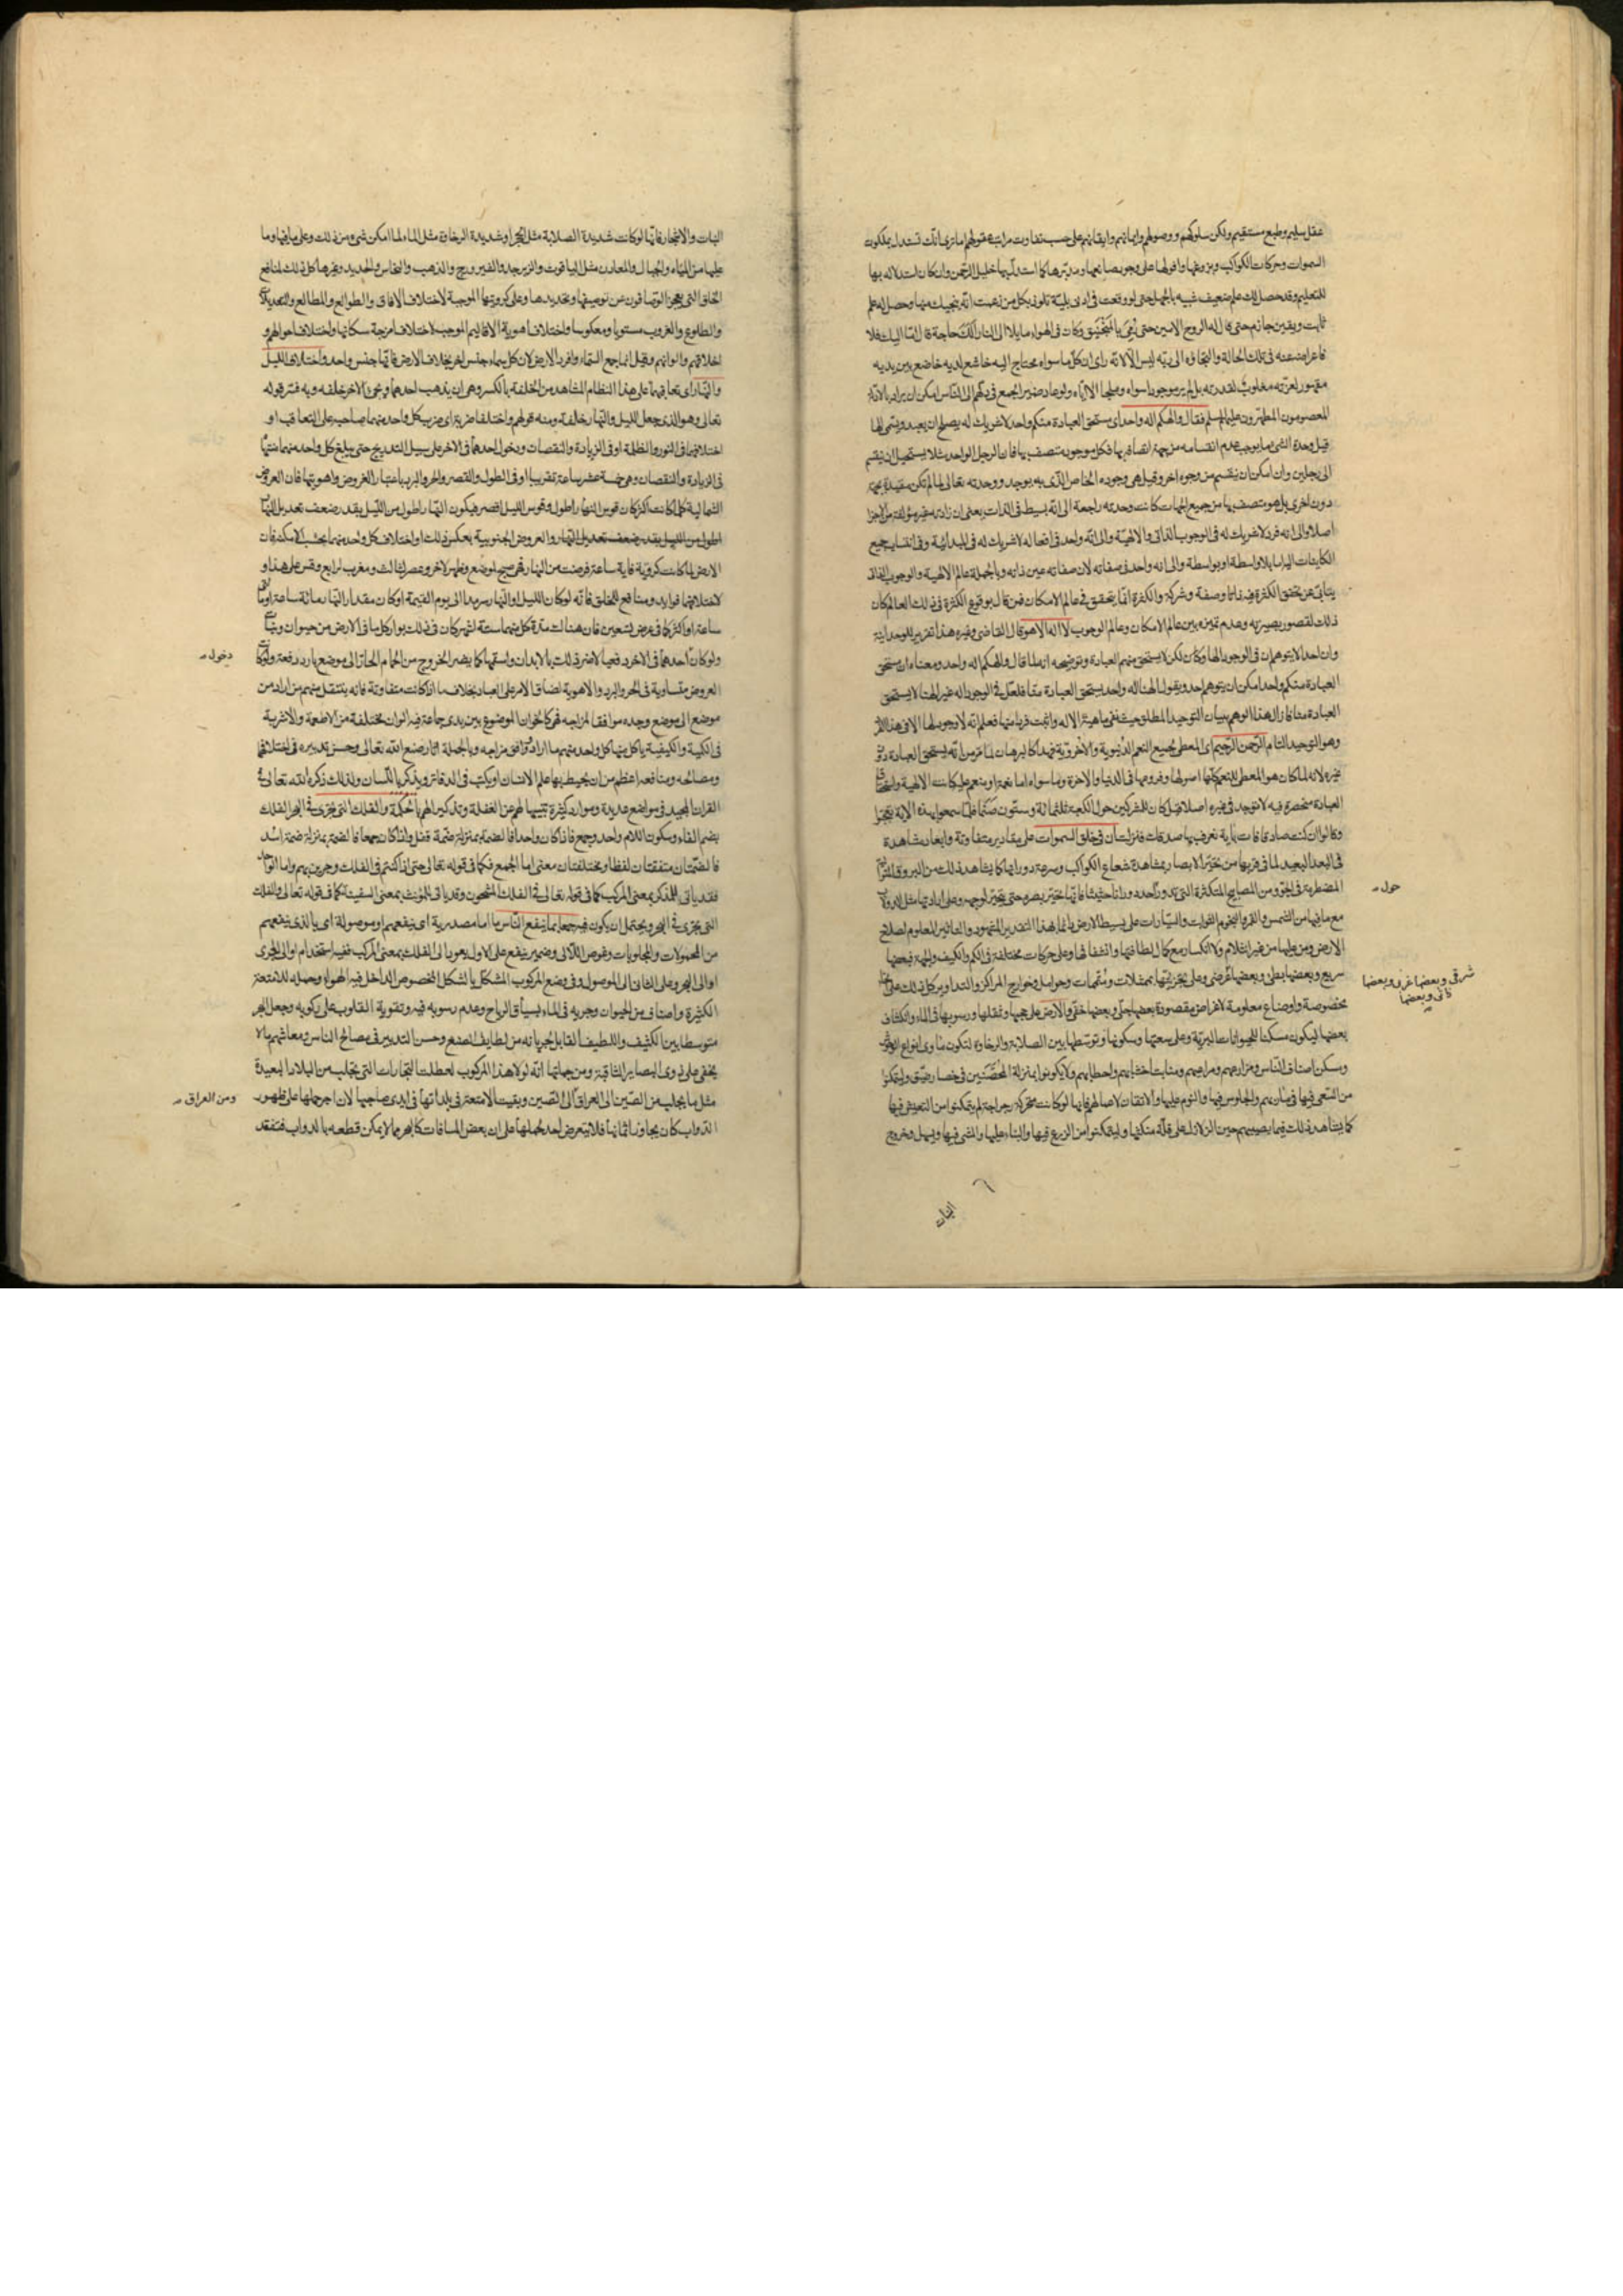 عقل سليم وطبع مستقيم ولكن سلوكهم ووصولهم وايمانهم وايقانهم على حسب تفاوت مراتب عقولهم اما ترى انك تستدل بملكوت
السموات وحركات الكواكب وبزوغها وافولها على وجود صانعها ومدبرها كما استدل بها خليل الرحمن وان كان استدلاله بها
للتعليم وقد حصل لك علم ضعيف شبيه بالجهل حتى لو وقعت في ادنى بلية تلوذ بكل من زعمت انه ينجيك منها وحصل له علم
ثابت ويقين جازم حتى قال له الروح الامين حين رمي بالمنجنيق وكان في الهواء مايلا الى النار ألك حاجة قال اما اليك فلا
فاعراضه عنه في تلك الحالة والتجاؤه الى ربه ليس الا لانه راى ان كل ما سواه محتاج اليه خاشع لديه خاضع بين يديه
مقهور لعزته مغلوب لقدرته بل لم ير موجودا سواه وملجأ الا اياه ولو عاد ضمير الجمع في الهكم الى الناس امكن ان يراد بالاله
المعصومون المطهرون عليهم السلم فقال والهكم اله واحد اى مستحق العبادة منكم واحد لا شريك له يصلح ان يعبد ويسمى الها
قيل وحدة الشى ما يوجب عدم انقسامه من جهة اتصافه بها فكل موجود متصف بها فان الرجل الواحد مثلا يستحيل ان ينقسم
الى رجلين وان امكن ان ينقسم من وجوه اخر وقيل هي وجوده الخاص الذى به يوجد ووحدته تعالى لما لم تكن مقيدة بجهة
دون اخرى بل هو متصف بها من جميع الجهات كانت وحدته راجعة الى انه بسيط في الذات بمعنى ان ذاته غير مؤلفة من الاجزا
اصلا والى انه فرد لا شريك له في الوجوب الذاتي والالهية والى انه واحد في افعاله لا شريك له في المبدائية وفي انتساب جميع
الكاينات اليه اما بلا واسطة او بواسطة والى انه واحد في صفاته لان صفاته عين ذاته وبالجملة عالم الالهية والوجوب الذاتي
يتابى عن تحقق الكثرة فيه ذاتا وصفة وشركة والكثرة انما يتحقق في عالم الامكان فمن قال بوقوع الكثرة في ذلك العالم كان
ذلك لقصور بصيرته وعدم تميزه بين عالم الامكان وعالم الوجوب لا اله الا هو قال القاضى وغيره هذا تقرير للوحدانية
وان احدا لا يتوهم ان في الوجود الها وكان لكن لا يستحق منهم العبادة وتوضيحه انه لما قال والهكم اله واحد ومعناه ان مستحق
العبادة منكم واحد امكن ان يتوهم احد ويقول الهنا اله واحد يستحق العبادة منا فلعل في الوجود اله غير الهنا لا يستحق
العبادة منا فازال هذا الوهم ببيان التوحيد المطلق حيث نفى ماهية الاله واثبت فردا منها فعلم انه لا وجود لها الا في هذا الفرد
وهو التوحيد التام الرحمن الرحيم اى المعطى لجميع النعم الدنيوية والاخروية فهذا كالبرهان لما مر من انه يستحق العبادة دون
غيره لانه لما كان هو المعطى للنعم كلها اصولها وفروعها في الدنيا والاخرة وما سواه اما نعمة او منعم عليه كانت الالهية واستحقاق
العبادة منحصرة فيه لا توجد في غيره اصلا قيل كان للمشركين حول الكعبة ثلثمائة وستون صنما فلما سمعوا بهذه الاية تعجبوا
وقالوا ان كنت صادقا فات باية نعرف بها صدقك فنزلت ان في خلق السموات على مقادير متفاوتة وابعاد مشاهدة
في البعد البعيد لما في قربها من تحير الابصار بمشاهدة شعاع الكواكب وسرعة دورانها كما يشاهد ذلك من البروق المتواترة
المضطربة في الجو ومن المصابيح المتكثرة التي تدور حول احد دورانا حثيثا فانها تحير بصره حتى يتحير لوجهه وعلى ادارتها مثل الدولاب
مع ما فيها من الشمس والقمر والنجوم الثوابت والسيارات على بسيط الارض دائما بهذا التقدير المشهود والتاثير المعلوم لصلاح
الارض ومن عليها من غير انثلام ولا انكسار مع كمال لطافتها وانشفافها وعلى حركات مختلفة في الكم والكيف والجهة فبعضها
شرقى وبعضها غربى وبعضها
ذاتى وبعضها
سريع وبعضها بطئ وبعضها عرضى وعلى تجزيتها بممثلات ومتممات وحوامل وخوارج المراكز والتداوير كل ذلك على انحاء
مخصوصة واوضاع معلومة لاغراض مقصودة بعضها جلي وبعضها خفي والارض على حجمها وثقلها ورسوبها في الماء وانكشاف
بعضها ليكون مسكنا للحيوانات البرية وعلى سعتها وسكونها وتوسطها بين الصلابة والرخاوة لتكون مأوى انواع الوحوش
ومسكن اصناف الناس ومزارعهم ومراعيهم ومنابت اخشابهم واحطابهم ولا يكونوا بمنزلة المحصنين في حصار ضيق وليتمكنوا
من السعى فيها في مآربهم والجلوس فيها والنوم عليها والاتقان لاعمالهم فانها لو كانت متحركة رجراجة لم يتمكنوا من التعيش فيها
كما يشاهد ذلك فيما يصيبهم حين الزلازل على قلة مكثها وليتمكنوا من الزرع فيها والبناء عليها والمشى فيها ويسهل خروج
النبات
النبات والاشجار فانها لو كانت شديدة الصلابة مثل الحجر او شديدة الرخاوة مثل الماء لما امكن شىء من ذلك وعلى ما فيها وما
عليها من المياه والجبال والمعادن مثل الياقوت والزبرجد والفيروزج والذهب والنحاس والحديد وغيرها كل ذلك لمنافع
الخلق التي يعجز الوصافون عن توصيفها وتحديدها وعلى كرويتها الموجبة لاختلاف الافاق والطوالع والمطالع والتعديلات
والطلوع والغروب مستويا ومعكوسا واختلاف اهوية الاقاليم الموجب لاختلاف امزجة سكانها واختلاف احوالهم و
اخلاقهم والوانهم وقيل انما جمع السماء وافرد الارض لان كل سماء جنس اخر بخلاف الارض فانها جنس واحد واختلاف الليل
والنهار اى تعاقبهما على هذا النظام المشاهد من الخلفة بالكسر وهى ان يذهب احدهما ويجئ الاخر خلفه وبه فسر قوله
تعالى وهو الذى جعل الليل والنهار خلفة ومنه قولهم واختلفا ضربة اى ضرب كل واحد منهما صاحبه على التعاقب او
اختلافهما في النور والظلمة او في الزيادة والنقصان ودخول احدهما في الاخر على سبيل التدريج حتى يبلغ كل واحد منهما منتهاه
في الزيادة والنقصان وهى خمسة عشر ساعة تقريبا او في الطول والقصر والحر والبرد باعتبار العروض واهويتها فان العروض
الشمالية كلما كانت اكثر كان قوس النهار اطول وقوس الليل اقصر فيكون النهار اطول من الليل بقدر ضعف تعديل النهار
اطول من الليل بقدر ضعف تعديل النهار والعروض الجنوبية بعكس ذلك او اختلاف كل واحد منهما بحسب الامكنة فان
الارض لما كانت كروية فاية ساعة فرضت من النهار فهى صبح لموضع وظهر لاخر وعصر لثالث ومغرب لرابع وقس على هذا و
لاختلافهما فوايد ومنافع للخلق فانه لو كان الليل او النهار سرمدا الى يوم القيمة او كان مقدار النهار مائة ساعة او مائتى
ساعة او اكثر كما في عرض تسعين فان هنالك مدة كل منهما ستة اشهر كان في ذلك بوار كل ما في الارض من حيوان ونبات
ولو كان دخول احدهما في الاخر دفعيا لاضر ذلك بالابدان واسقمها كما يضر الخروج من الحمام الحار الى موضع بارد دفعة ولو كان
العروض متساوية في الحر والبرد والاهوية لضاق الامر على العباد بخلاف ما اذا كانت متفاوتة فانه ينتقل منهم من اراد من
موضع الى موضع وجده موافقا لمزاجه فهى كالخوان الموضوع بين يدى جماعة فيه الوان مختلفة من الاطعمة والاشربة
في الكمية والكيفية ياكل منها كل واحد منهم ما اراد ووافق مزاجه وبالجملة اثار صنع الله تعالى وحسن تدبيره في اختلافهما
ومصالحه ومنافعه اعظم من ان يحيط بها علم الانسان او يكتب في الدفاتر ويذكر باللسان ولذلك ذكره الله تعالى في
القران المجيد في مواضع عديدة وموارد كثيرة تنبيها لهم عن الغفلة وتذكيرا لهم بالحكمة والفلك التى تجرى في البحر الفلك
بضم الفاء وسكون اللام واحد وجمع فاذا كان واحدا فالضمة بمنزلة ضمة قفل واذا كان جمعا فالضمة بمنزلة ضمة اسد
فالضمتان متفقتان لفظا ومختلفتان معنى اما الجمع فكما في قوله تعالى حتى اذا كنتم في الفلك وجرين بهم واما الواحد
فقد ياتى للمذكر بمعنى المركب كما في قوله تعالى في الفلك المشحون وقد ياتى للمؤنث بمعنى السفينة كما في قوله تعالى والفلك
التى تجرى في البحر ويحتمل ان يكون فيه جمعا بما ينفع الناس ما اما مصدرية اى ينفعهم او موصولة اى بالذى ينفعهم
من المحمولات والمجلوبات وغوص اللآلى وضمير ينفع على الاول يعود الى الفلك بمعنى المركب ففيه استخدام او الى الجرى
او الى البحر وعلى الثانى الى الموصول وفي وضع المركوب المشكل بالشكل المخصوص الداخل فيه الهواء وحمله للامتعة
الكثيرة واصناف من الحيوان وجريه في الماء بسياق الرياح وعدم رسوبه فيه وتقوية القلوب على ركوبه وجعل البحر
متوسطا بين الكثيف واللطيف القابل لجريانه من لطايف الصنع وحسن التدبير في مصالح الناس ومعاشهم ما لا
يخفى على ذوى البصاير الثاقبة ومن جملتها انه لولا هذا المركوب لعطلت التجارات التى تجلب من البلاد البعيدة
مثل ما يجلب من الصين الى العراق ومن العراق الى الصين وبقيت الامتعة في بلدانها في ايدى صاحبها لان اجر حملها على ظهور
الدواب كان يجاوز اثمانها فلا يتعرض احد لحملها على ان بعض المسافات كالبحر مما لا يمكن قطعه بالدواب فتفقد